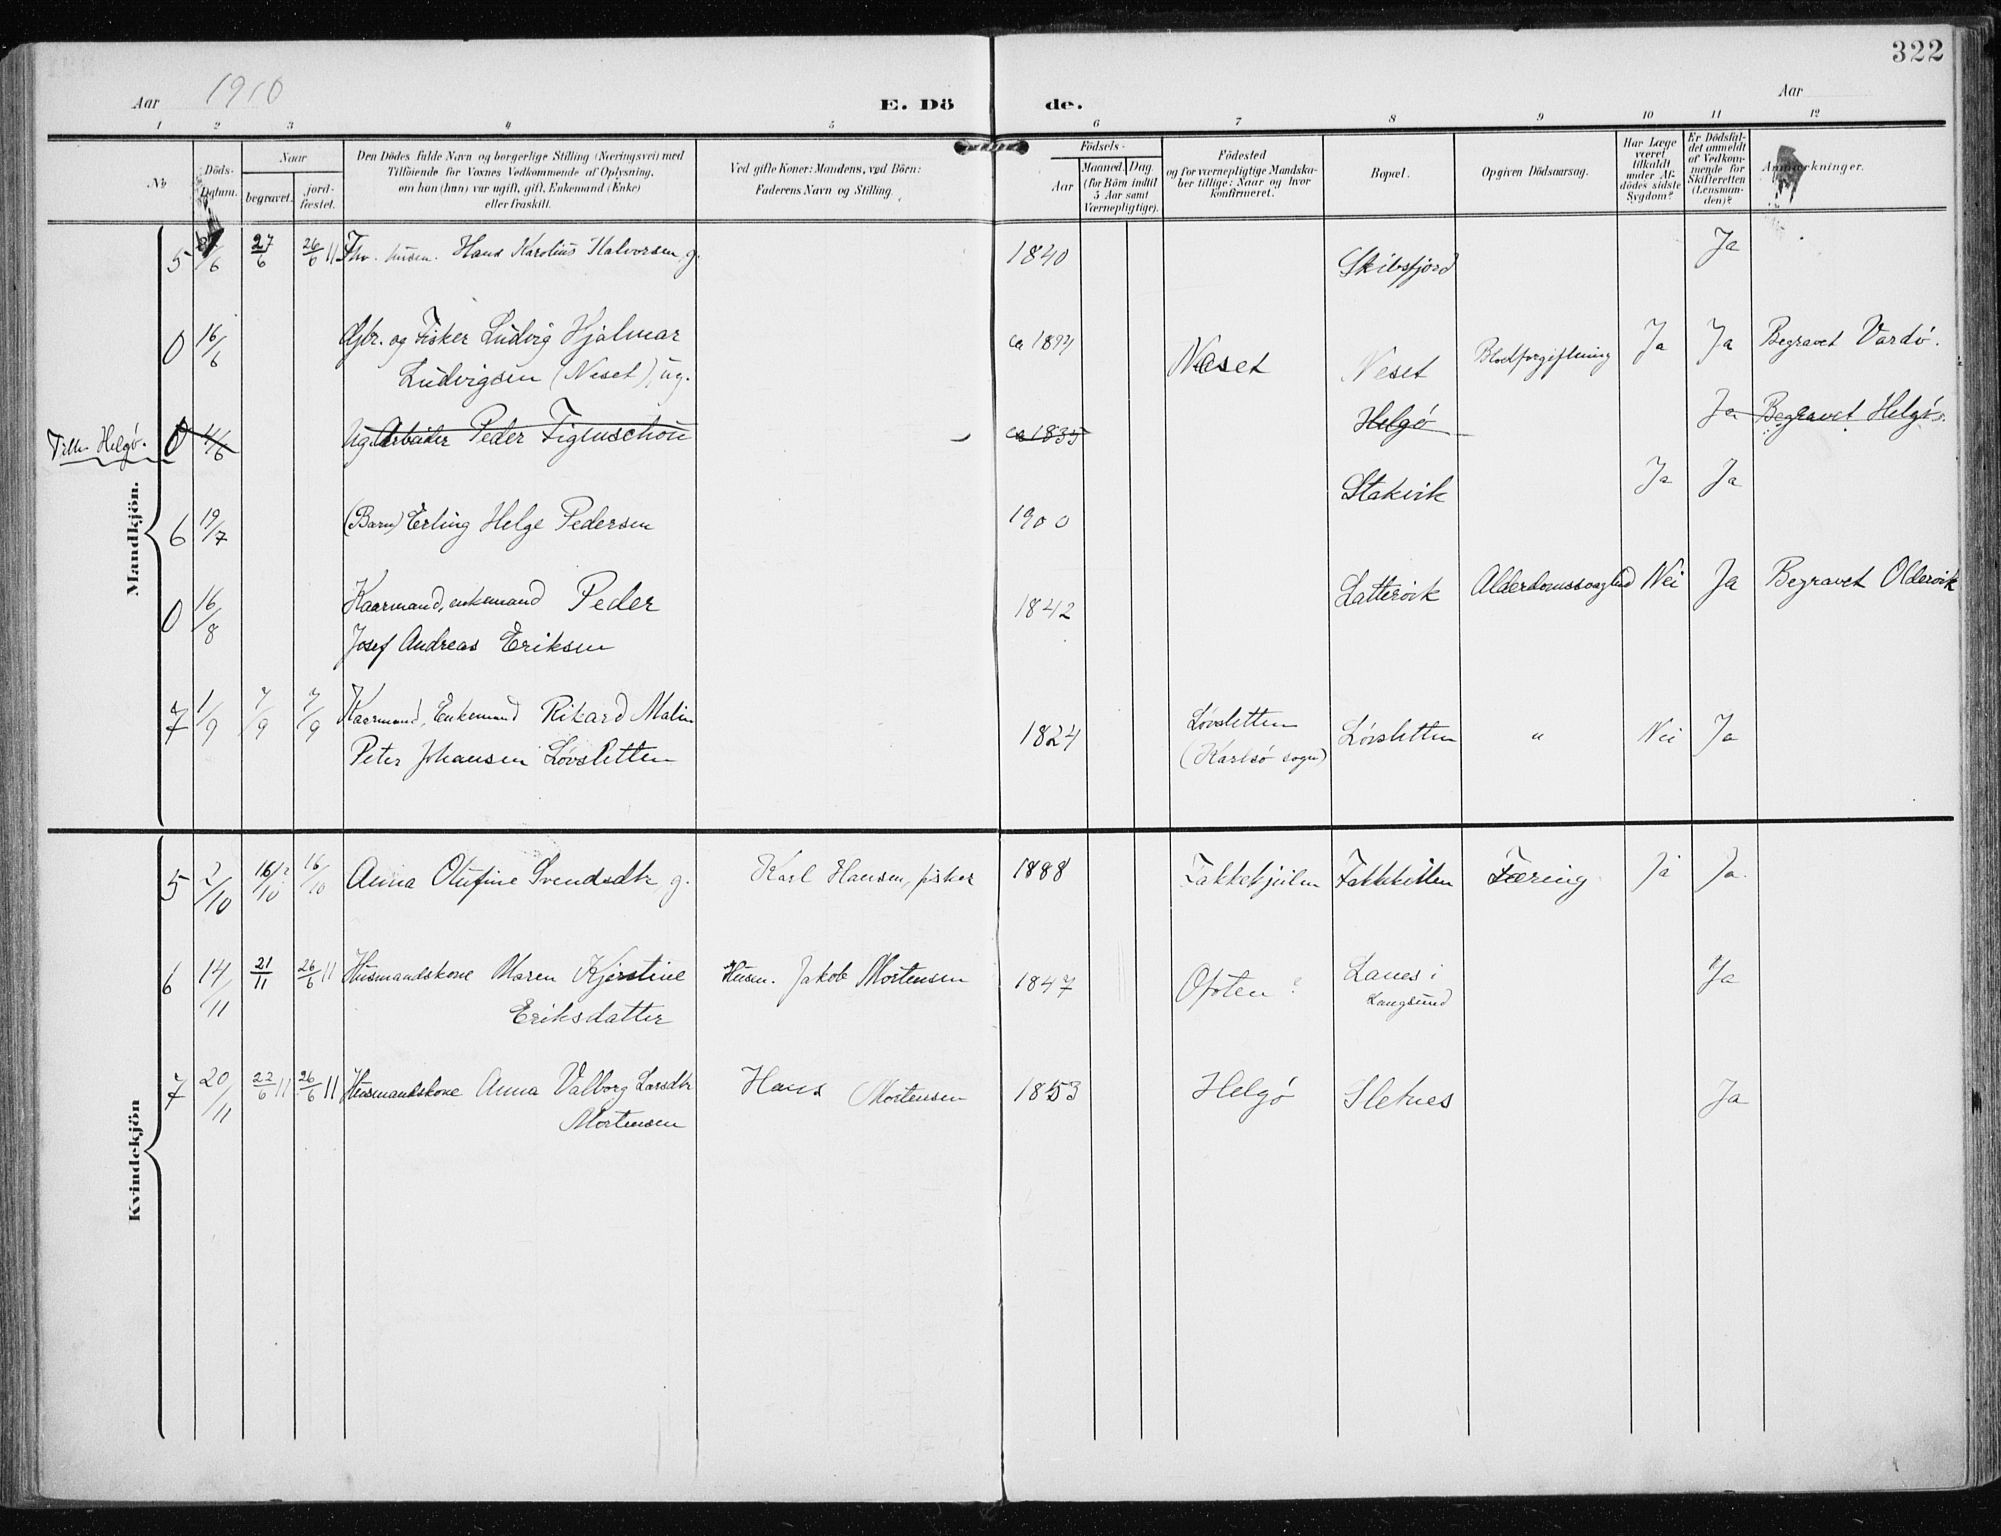 322
Aar 1910 E. Dö de. Aar
1 2 3 4 5 6 7 8 9 10 11 12
No
Döds-Datum.
Naar
begravet.
jord-fæstet.
Den Dödes fulde Navn og borgerlige Stilling (Næringsvei) med
Tilföiende for Voxnes Vedkommende af Oplysning,
om han (hun) var ugift, gift, Enkemand (Enke)
eller fraskilt.
Ved gifte Koner: Mandens, ved Börn:
Faderens Navn og Stilling.
Födsels-
Aar
Maaned. Dag.
(for Börn indtil
5 Aar samt
Værnepligtige).
Födested
og for værnepligtige Mandska-
ber tillige: Naar og hvor
konfirmeret.
Bopæl.
Opgiven Dödsaarsag.
Har Læge
været
tilkaldt
under Af-
dödes sidste
Sygdom?
Er Dödsfal-
det anmeldt
af Vedkom-
mende for
Skifteretten
(Lensman-
den)?
Anmærkninger.
Mandkjön.
5 /6 27/6 26/6 11 Hans Karolius Halvorsen, g. 1840 Skibsfjord Ja
0 16/6 Gbr. og Fisker Ludvig Hjalmar ca 1894 Neset Neset Blodforgiftning Ja Ja Begravet Vardø.
Ludvigsen (Neset), ug.
Tilh. Helgø. 0 4/6 Ug. Arbeider Peder Figenschou ca 1835 Helgø Ja Begravet Helgø.
6 19/7 (Barn) Erling Helge Pedersen 1900 Stakvik Ja Ja
0 16/8 Kaarmand, enkemand Peder 1842 Lattervik Alderdomssvaghed Nei Ja Begravet Oldervik
Josef Andreas Eriksen
7 1/9 7/9 7/9 Kaarmand, Enkemand Rikard Malin 1824 Løvsletten Løvsletten " Nei Ja
Peter Johansen Løvsletten (Karlsø sogn)
Kvindekjön
5 2/10 16/10 16/10 Anna Olufine Svendsdtr, g. Karl Hansen, fisker 1888 Takkekjeilen Tæring Ja Ja.
6 14/11 21/11 26/6 11 Husmandskone Maren Kjerstine Husm. Jakob Mortensen 1847 Ofoten? Lanes i Ja
Eriksdatter Langsund
7 20/11 22/6 11 26/6 11 Husmandskone Anna Valborg Larsdtr Hans Mortensen 1853 Helgø Sletnes Ja
Mortensen